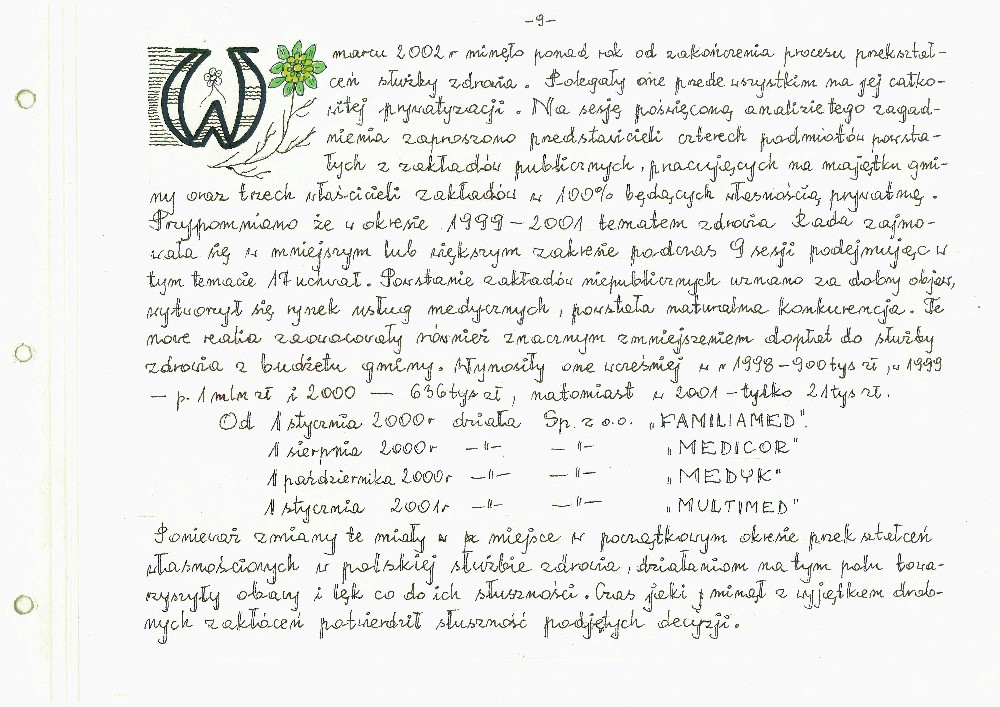 -9-
W marcu 2002 r minęło ponad rok od zakończenia procesu przekształ-
ceń służby zdrowia. Polegały one przede wszystkim na jej całko-
witej prywatyzacji. Na sesję poświęconą analizie tego zagad-
nienia zaproszono przedstawicieli czterech podmiotów powsta-
łych z zakładów publicznych, pracujących na majątku gmi-
ny oraz trzech właścicieli zakładów w 100% będących własnością prywatną.
Przypomniano że w okresie 1999-2001 tematem zdrowia Rada zajmo-
wała się w mniejszym lub większym zakresie podczas 9 sesji podejmując w
tym temacie 17 uchwał. Powstanie zakładów niepublicznych uznano za dobry objaw,
wytworzył się rynek usług medycznych, powstała naturalna konkurencja. Te
nowe realia zaowocowały również znacznym zmniejszeniem dopłat do służby
zdrowia z budżetu gminy. Wynosiły one wcześniej w r 1998-900tys zł, w 1999
- p. 1 mln zł i 2000 - 636 tys zł, natomiast w 2001 - tylko 21 tys zł.
Od 1 stycznia 2000r działa Sp. z o.o. „FAMILIAMED".
1 sierpnia 2000r -"- -"- „MEDICOR"
1 października 2000r -"- -"- „MEDYK"
1 stycznia 2001r -"- -"- „MULTIMED"
Ponieważ zmiany te miały miejsce w początkowym okresie przekształceń
własnościowych w polskiej służbie zdrowia, działaniom na tym polu towa-
rzyszyły obawy i lęk co do ich słuszności. Czas jaki minął z wyjątkiem drob-
nych zakłóceń potwierdził słuszność podjętych decyzji.